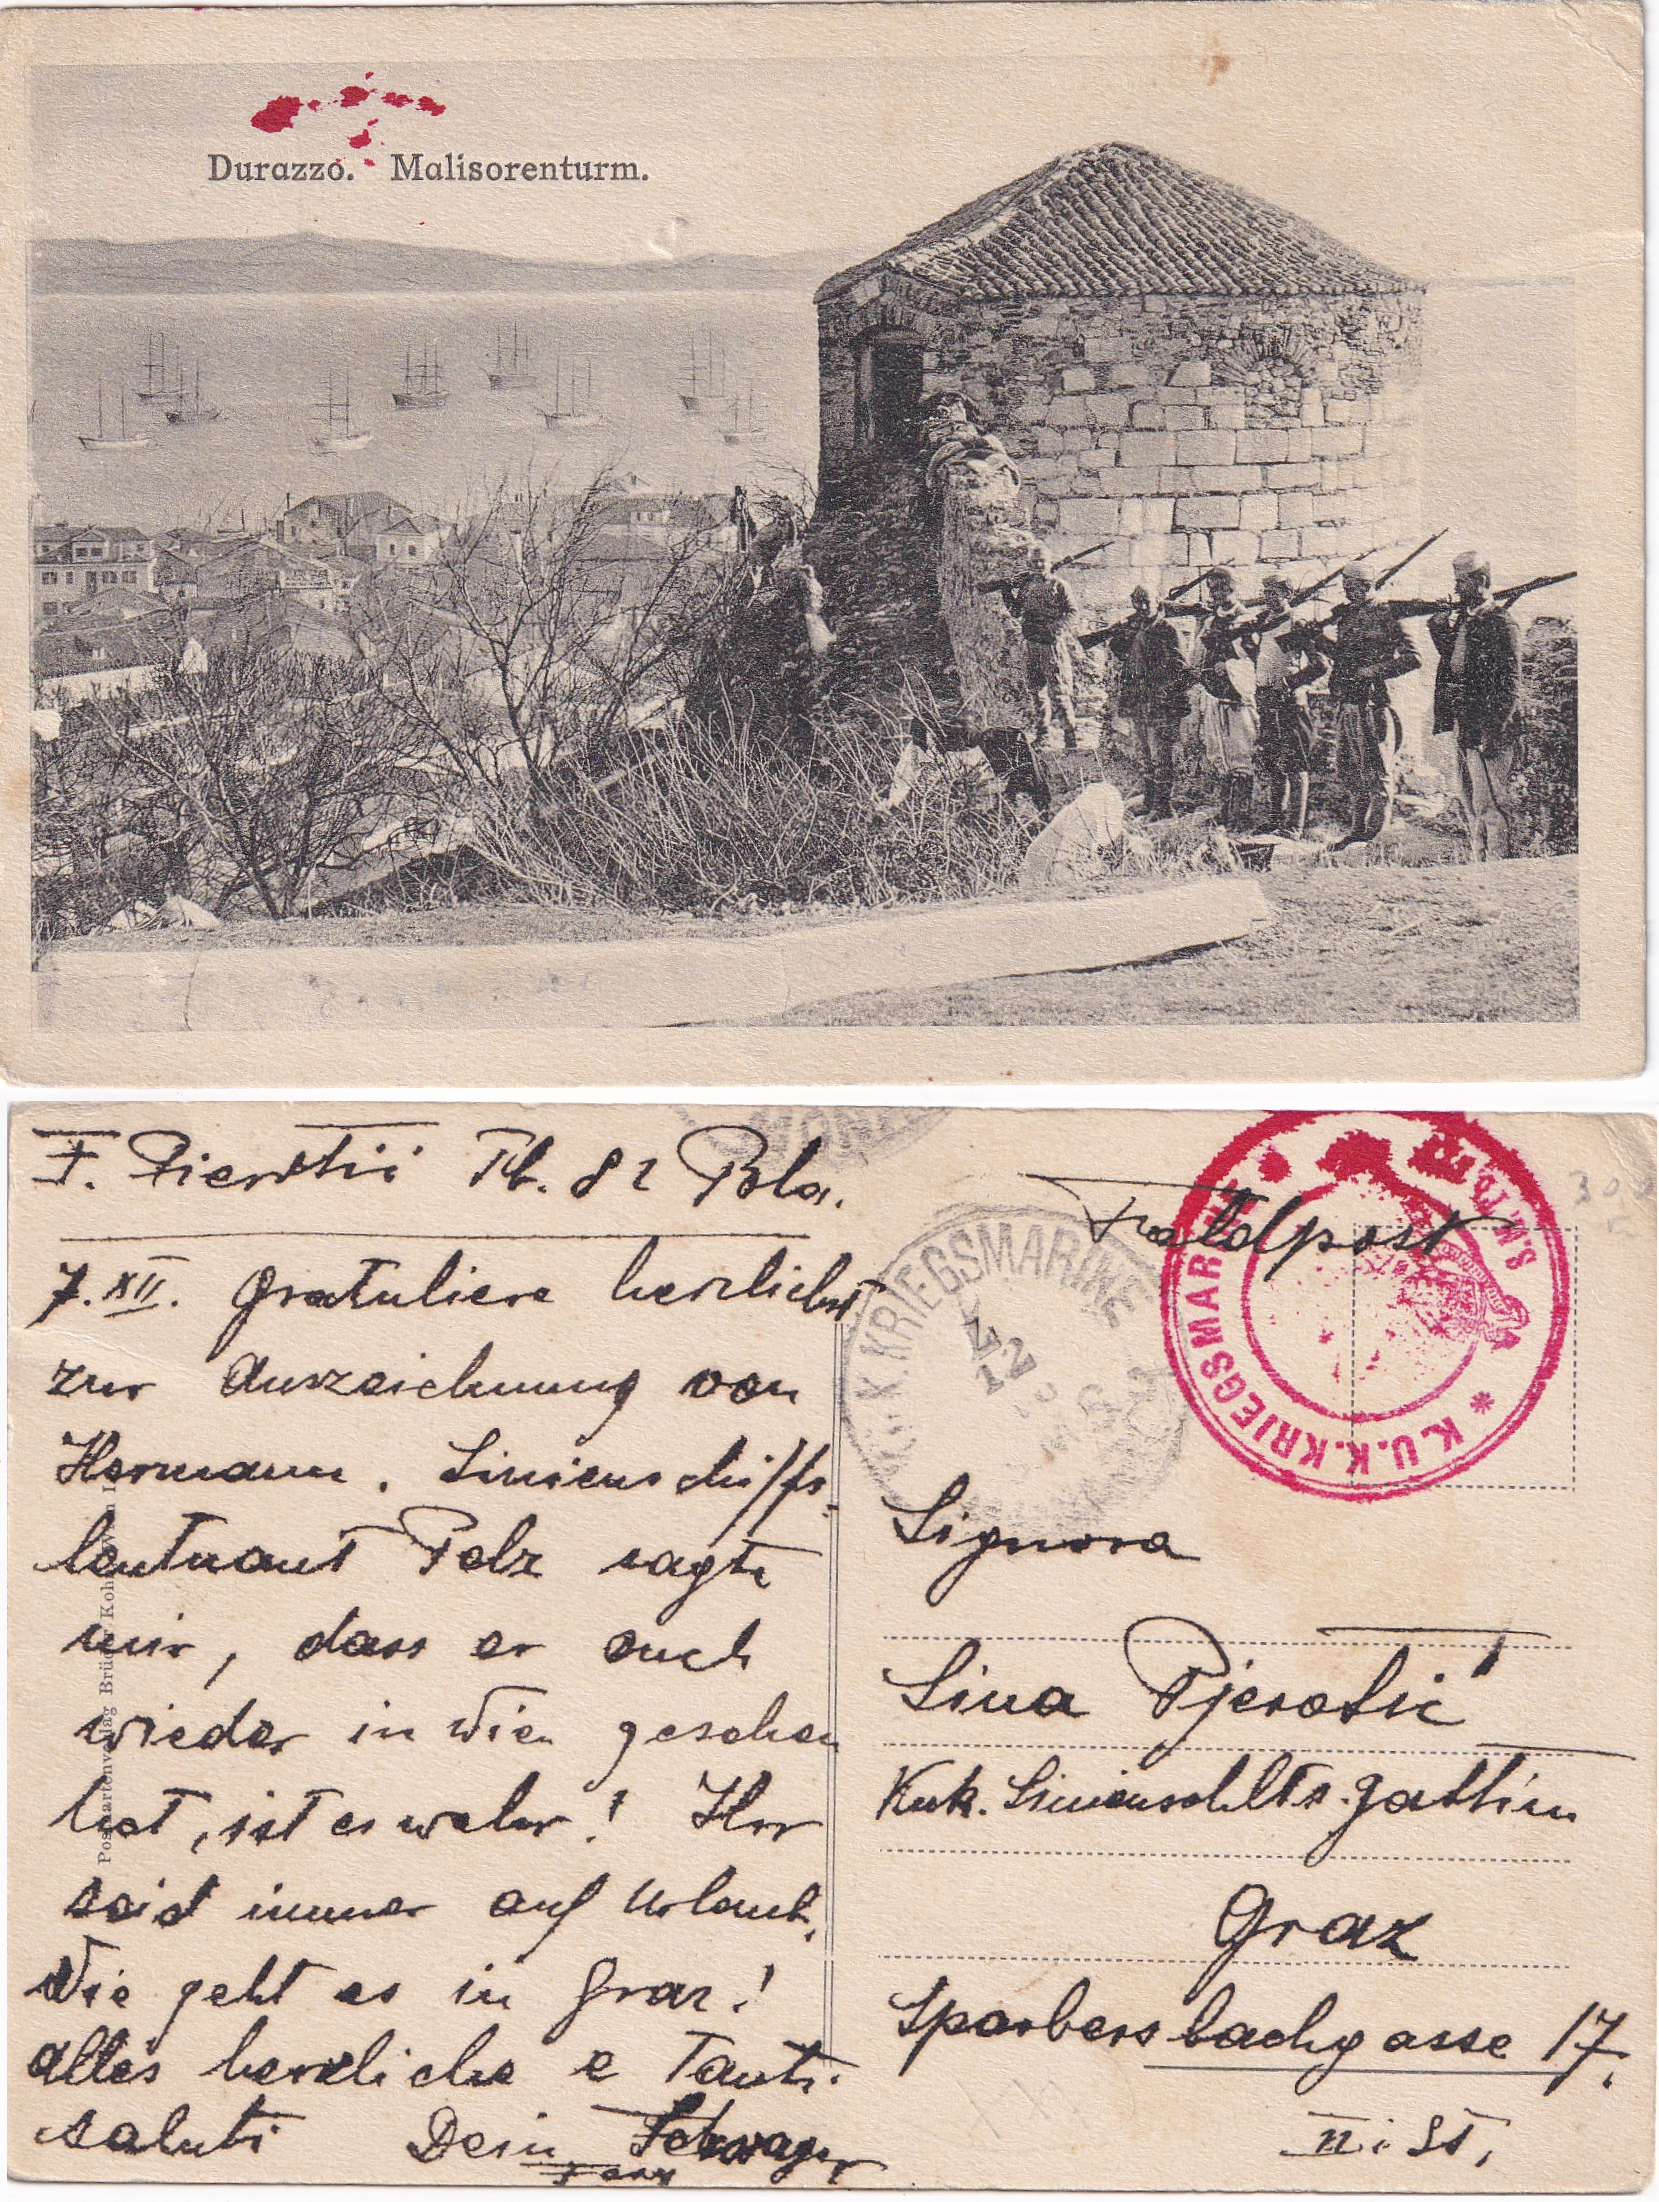 Durazzo. Malisorenturm.
F. Pierotić Tb. 81 Pola.
7. XII. Gratuliere herzlichst
zur Auszeichnung von
Hermann. Linienschiffs-
leutnant Pelz sagte
mir, dass er euch
wieder in Wien gesehen
hat, ist es wahr! Ihr
seid immer auf Urlaub.
Wie geht es in Graz!
alles herzliche e Tanti
saluti Dein Schwager
Postkartenverlag Brüder Kohn Wien I.
Feldpost
K.U.K. KRIEGSMARINE
12
K.U.K. KRIEGSMARINE
S.M.
Signora
Lina Pjerotić
Kuk. Linienschlts. gattin
Graz
Sparbersbachgasse 17.
II. St.